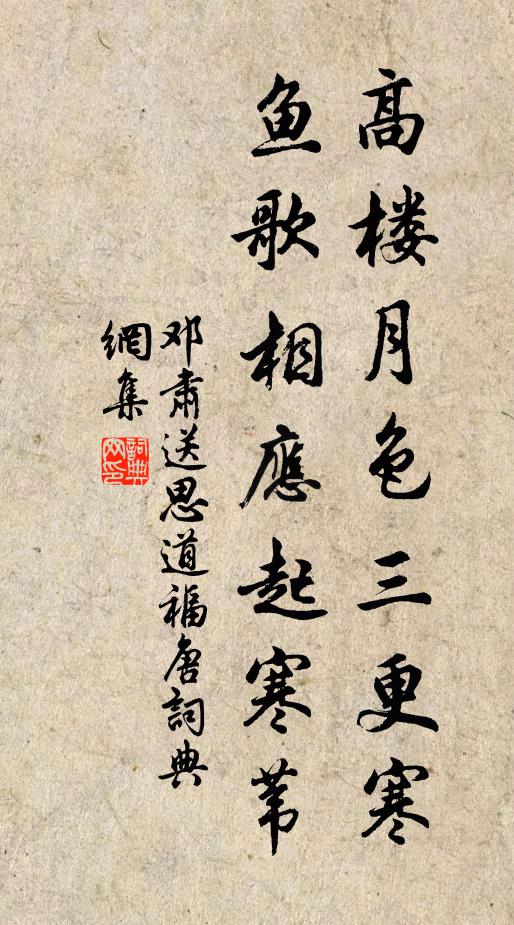 高楼月色三更寒
鱼歌相應起寒苇
邓肅送思道福唐詞典
網集
詞典网印